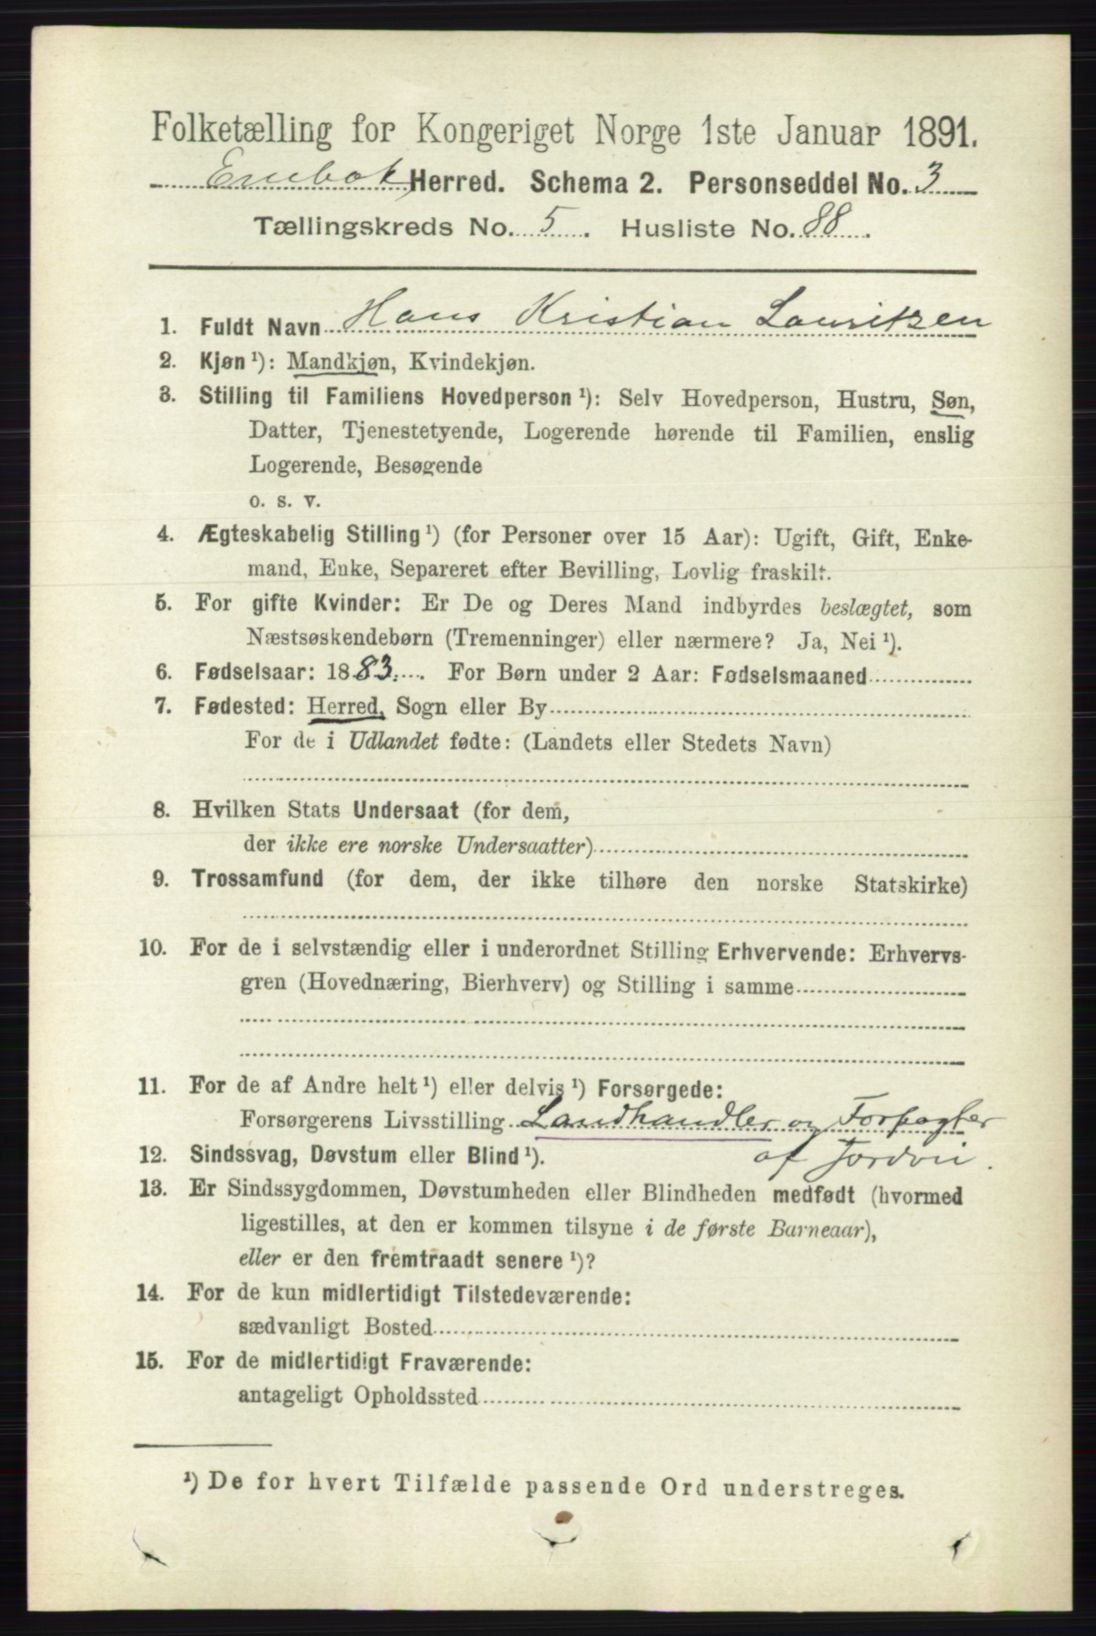 Folketælling for Kongeriget Norge 1ste Januar 1891.
Enebak Herred. Schema 2. Personseddel No. 3
Tællingskreds No. 5. Husliste No. 88.
1. Fuldt Navn Hans Kristian Lauritzen
2. Kjøn ¹): Mandkjøn, Kvindekjøn.
3. Stilling til Familiens Hovedperson ¹): Selv Hovedperson, Hustru, Søn,
Datter, Tjenestetyende, Logerende hørende til Familien, enslig
Logerende, Besøgende
o. s. v.
4. Ægteskabelig Stilling ¹) (for Personer over 15 Aar): Ugift, Gift, Enke-
mand, Enke, Separeret efter Bevilling, Lovlig fraskilt.
5. For gifte Kvinder: Er De og Deres Mand indbyrdes beslægtet, som
Næstsøskendebørn (Tremenninger) eller nærmere? Ja, Nei ¹).
6. Fødselsaar: 1883. For Børn under 2 Aar: Fødselsmaaned
7. Fødested: Herred, Sogn eller By
For de i Udlandet fødte: (Landets eller Stedets Navn)
8. Hvilken Stats Undersaat (for dem,
der ikke ere norske Undersaatter)
9. Trossamfund (for dem, der ikke tilhøre den norske Statskirke)
10. For de i selvstændig eller i underordnet Stilling Erhvervende: Erhvervs-
gren (Hovednæring, Bierhverv) og Stilling i samme
11. For de af Andre helt ¹) eller delvis ¹) Forsørgede:
Forsørgerens Livsstilling Landhandler og Forpagter
af Jordvei.
12. Sindssvag, Døvstum eller Blind ¹).
13. Er Sindssygdommen, Døvstumheden eller Blindheden medfødt (hvormed
ligestilles, at den er kommen tilsyne i de første Barneaar),
eller er den fremtraadt senere ¹)?
14. For de kun midlertidigt Tilstedeværende:
sædvanligt Bosted
15. For de midlertidigt Fraværende:
antageligt Opholdssted
¹) De for hvert Tilfælde passende Ord understreges.